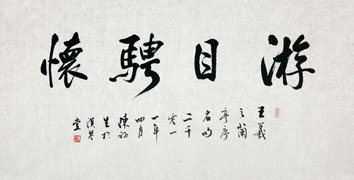 游目騁懷
王羲
之蘭
亭序
名句
二千
零一
一年
四月
陳
生於
堂